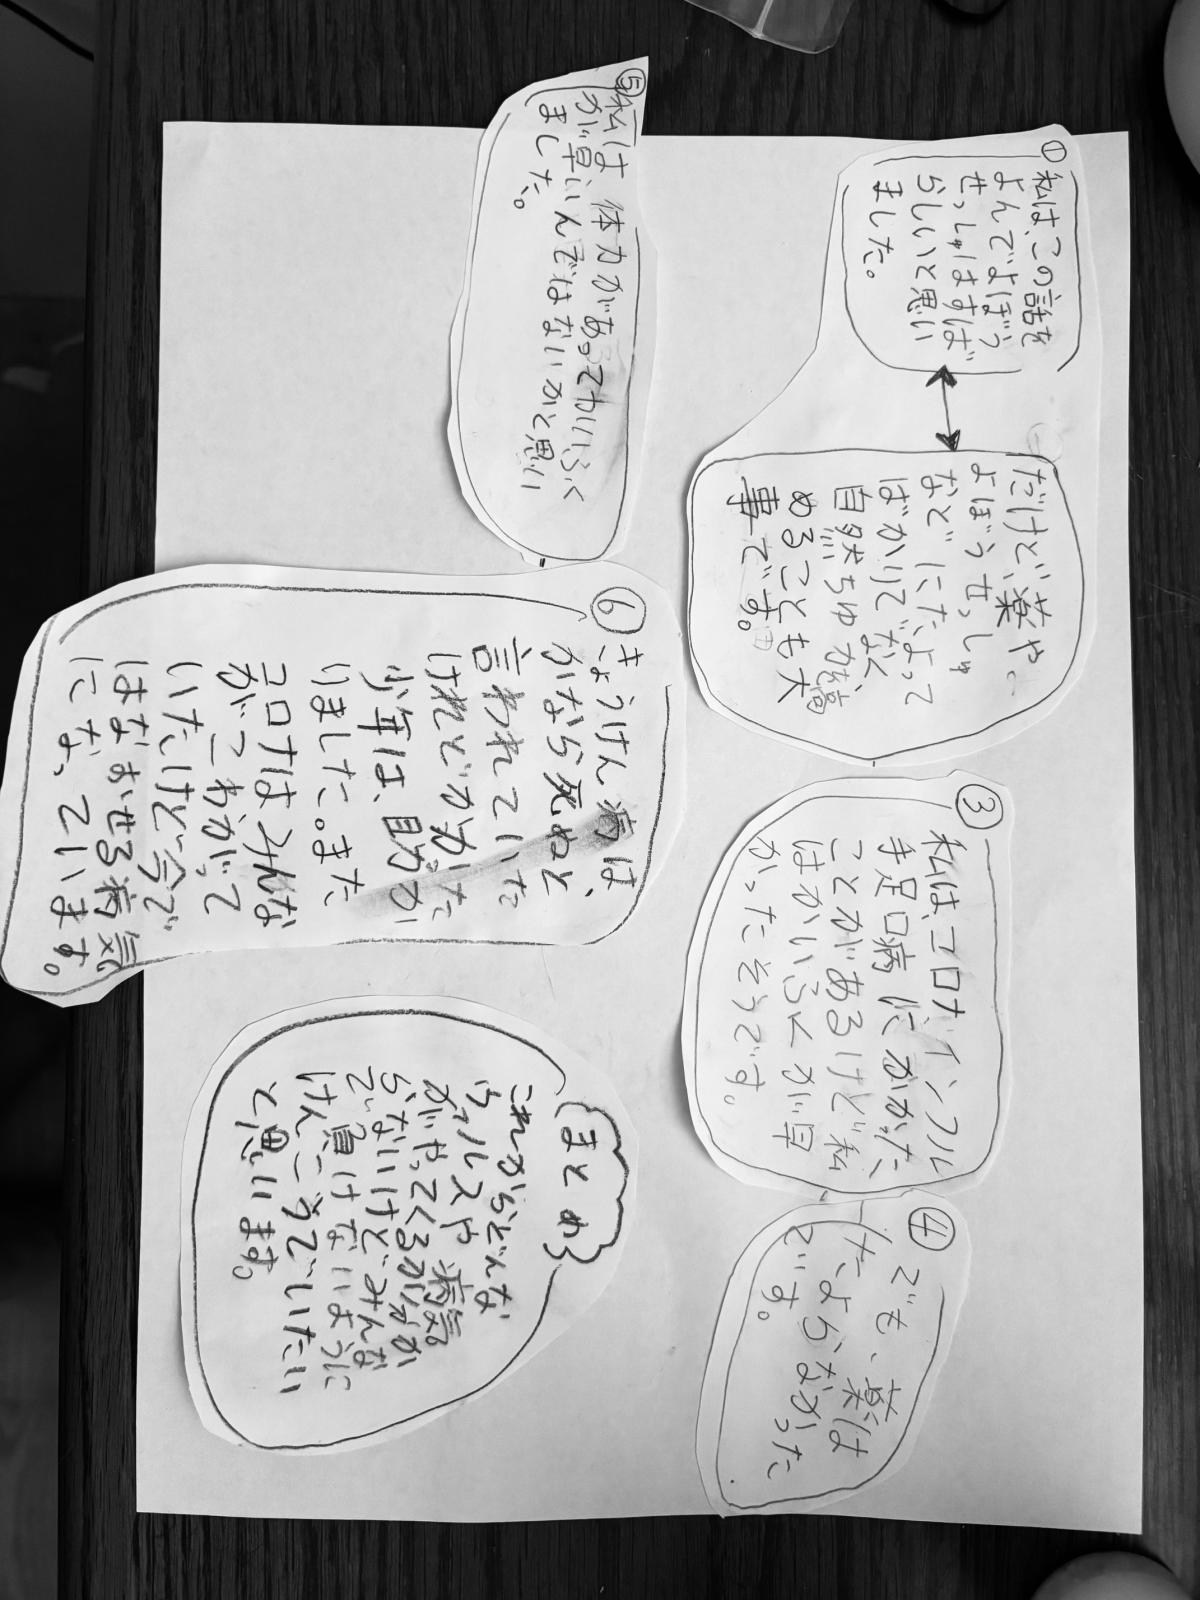 ①
私は、この話を
よんでよぼう
せっしゅはすば
らしいと思い
ました。
だけど、薬や、
よぼうせっしゅ
などにたよって
ばかりでなく
自然ちゆ力を高
めることも大
事です。
③
私は、コロナ、インフル
手足口病にかかった
ことがあるけど私
はかいふくが早
かったそうです。
④
でも、薬は
たよらなかった
です。
⑤
私は体力があってかいふく
が早いんではないかと思い
ました。
⑥
きょうけん病は、
かなら死ぬと
言われていた
けれどかかった
少年は、助か
りました。また
コロナはみんな
がこわがって
いたけど今で
はなおせる病気
になっています。
まとめ
これからどんな
ウィルスや病気
がやってくるか分か
らないけどみんな
で負けないように
けんこうでいたい
と思います。